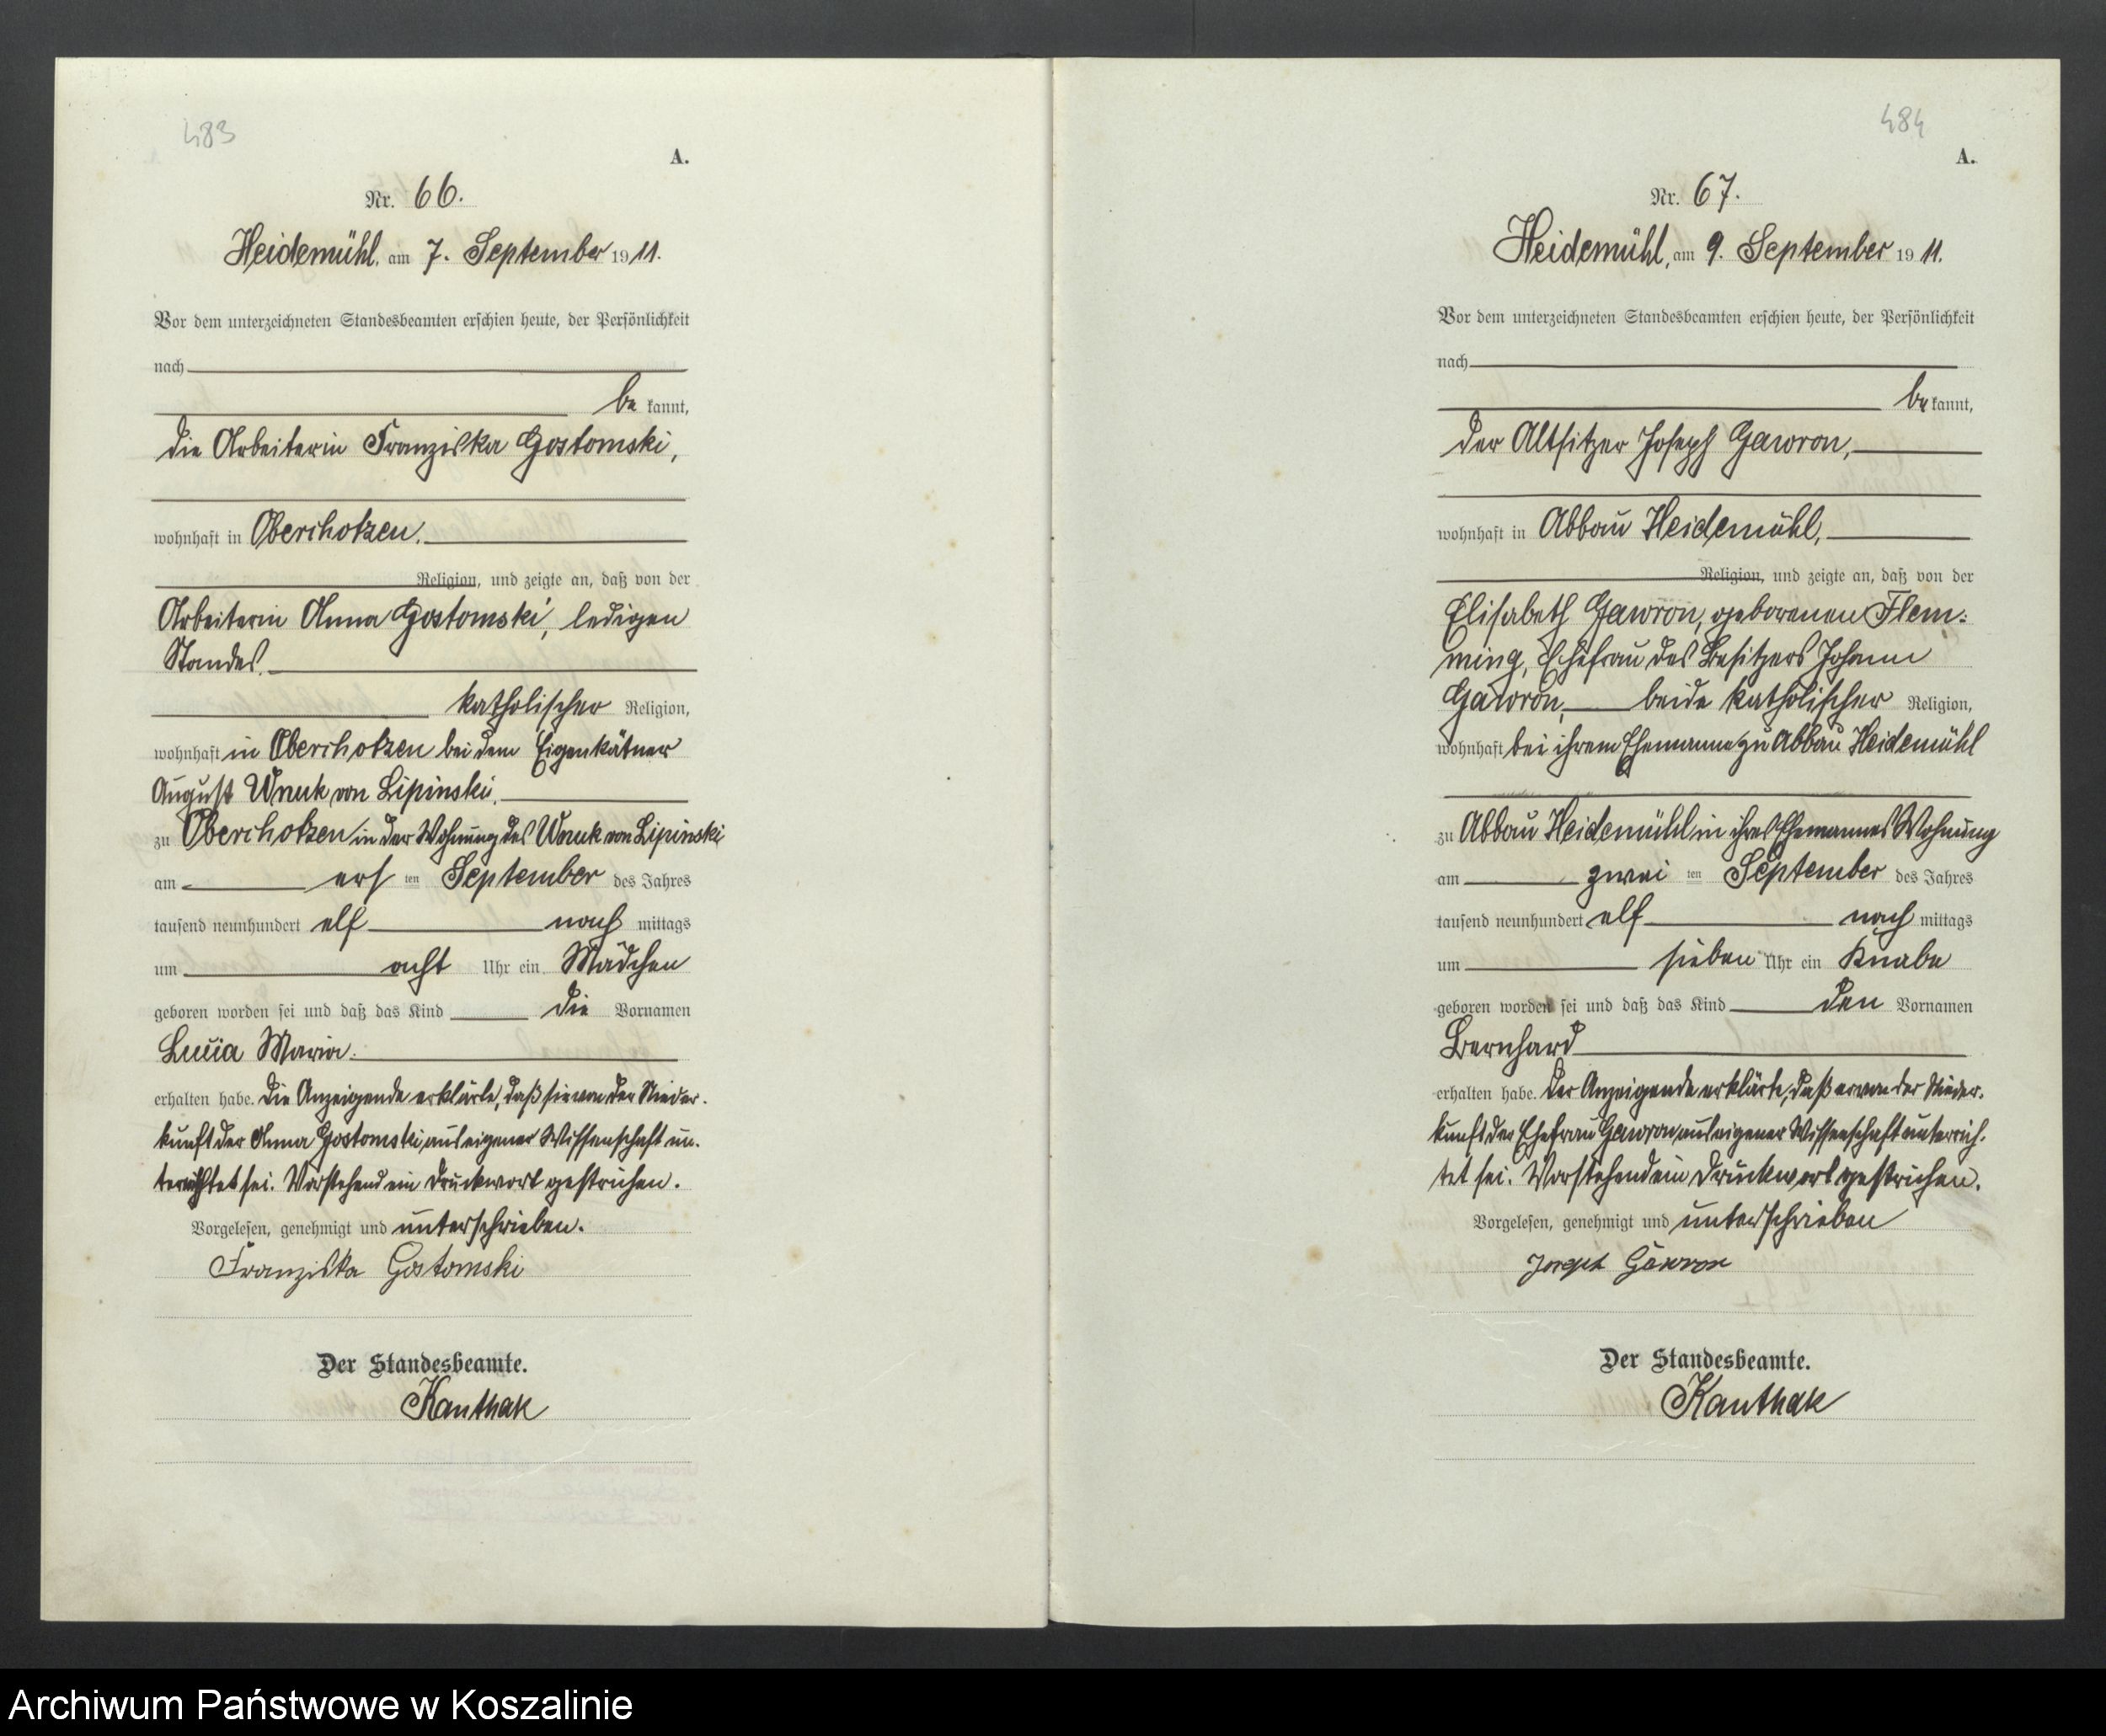 483
A.
Nr. 66.
Heidemühl, am 7. September 1911.
Vor dem unterzeichneten Standesbeamten erschien heute, der Persönlichkeit
nach
be kannt,
die Arbeiterin Franziska Gostomski,
wohnhaft in Oberchotzen.
Religion, und zeigte an, daß von der
Arbeiterin Anna Gostomski, ledigen
Standes.
katholischer Religion,
wohnhaft in Oberchotzen bei dem Eigenkätner
August Wnuk von Lipinski,
zu Oberchotzen in der Wohnung des Wnuk von Lipinski
am ers ten September des Jahres
tausend neunhundert elf nach mittags
um acht Uhr ein Mädchen
geboren worden sei und daß das Kind die Vornamen
Lucia Maria.
erhalten habe. Die Anzeigende erklärte, daß sie von der Nieder-
kunft der Anna Gostomski aus eigener Wissenschaft un-
terrichtet sei. Vorstehend ein Druckwort gestrichen.
Vorgelesen, genehmigt und unterschrieben.
Franziska Gostomski
Der Standesbeamte.
Kanthak
484
A.
Nr. 67.
Heidemühl, am 9. September 1911.
Vor dem unterzeichneten Standesbeamten erschien heute, der Persönlichkeit
nach
be kannt,
der Altsitzer Joseph Gawron,
wohnhaft in Abbau Heidemühl,
Religion, und zeigte an, daß von der
Elisabeth Gawron, geborenen Flem-
ming, Ehefrau des Besitzers Johann
Gawron, beide katholischer Religion,
wohnhaft bei ihrem Ehemanne zu Abbau Heidemühl
zu Abbau Heidemühl in ihres Ehemannes Wohnung
am zwei ten September des Jahres
tausend neunhundert elf nach mittags
um sieben Uhr ein Knabe
geboren worden sei und daß das Kind den Vornamen
Bernhard
erhalten habe. Der Anzeigende erklärte, daß er von der Nieder-
kunft der Ehefrau Gawron aus eigener Wissenschaft unterrich-
tet sei. Vorstehend ein Druckwort gestrichen.
Vorgelesen, genehmigt und unterschrieben
Joseph Gawron
Der Standesbeamte.
Kanthak
Archiwum Państwowe w Koszalinie